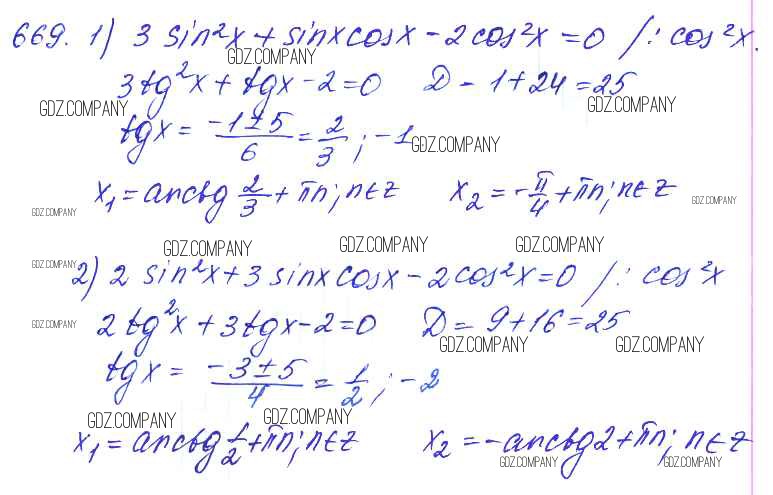 669. 1) 3 sin²x + sinx cosx - 2 cos²x = 0 /: cos²x.
GDZ.COMPANY
3tg²x + tgx - 2 = 0 D = 1 + 24 = 25
GDZ.COMPANY GDZ.COMPANY
tgx = (-1 ± 5)/6 = 2/3 ; -1
GDZ.COMPANY
x₁ = arctg 2/3 + πn; n ∈ z x₂ = -π/4 + πn; n ∈ z
GDZ.COMPANY GDZ.COMPANY
GDZ.COMPANY GDZ.COMPANY GDZ.COMPANY
GDZ.COMPANY
2) 2 sin²x + 3 sinx cosx - 2 cos²x = 0 /: cos²x
2tg²x + 3tgx - 2 = 0 D = 9 + 16 = 25
GDZ.COMPANY GDZ.COMPANY GDZ.COMPANY
tgx = (-3 ± 5)/4 = 1/2 ; -2
GDZ.COMPANY GDZ.COMPANY
x₁ = arctg 1/2 + πn; n ∈ z x₂ = -arctg2 + πn; n ∈ z
GDZ.COMPANY GDZ.COMPANY